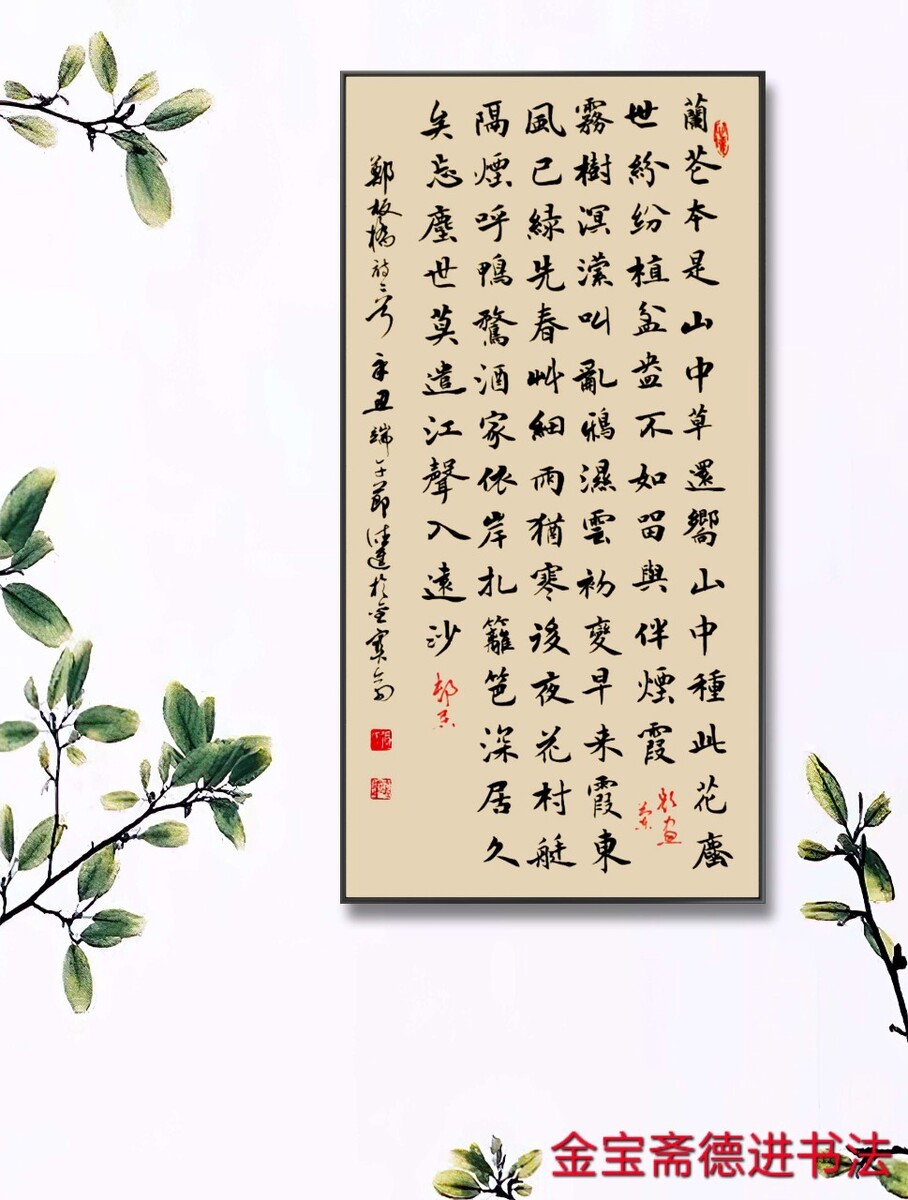 蘭花本是山中草還嚮山中種此花塵
世紛紛植盆盎不如留與伴煙霞
題畫蘭
霧樹溟濛叫亂鴉濕雲初變早来霞東
風已綠先春艸細雨猶寒後夜花村艇
隔煙呼鴨鶩酒家依岸扎籬笆深居久
矣忘塵世莫遣江聲入遠沙
邨居
鄭板橋詩二首 辛丑端午節德進於金寶斋
金宝斋德进书法